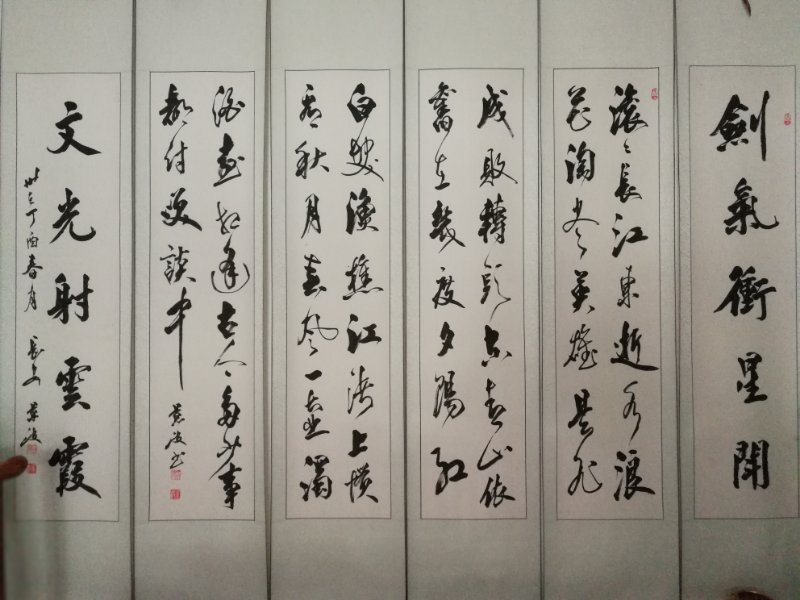 劍氣衝星
滚〻長江東逝水浪
花淘尽英雄是非
成敗轉頭空青山依
舊在幾度夕陽紅
白髮漁樵江渚上慣
看秋月春風一壺濁
酒喜相逢古今多少事
都付笑談中
文光射雲霞
岁在丁酉春月